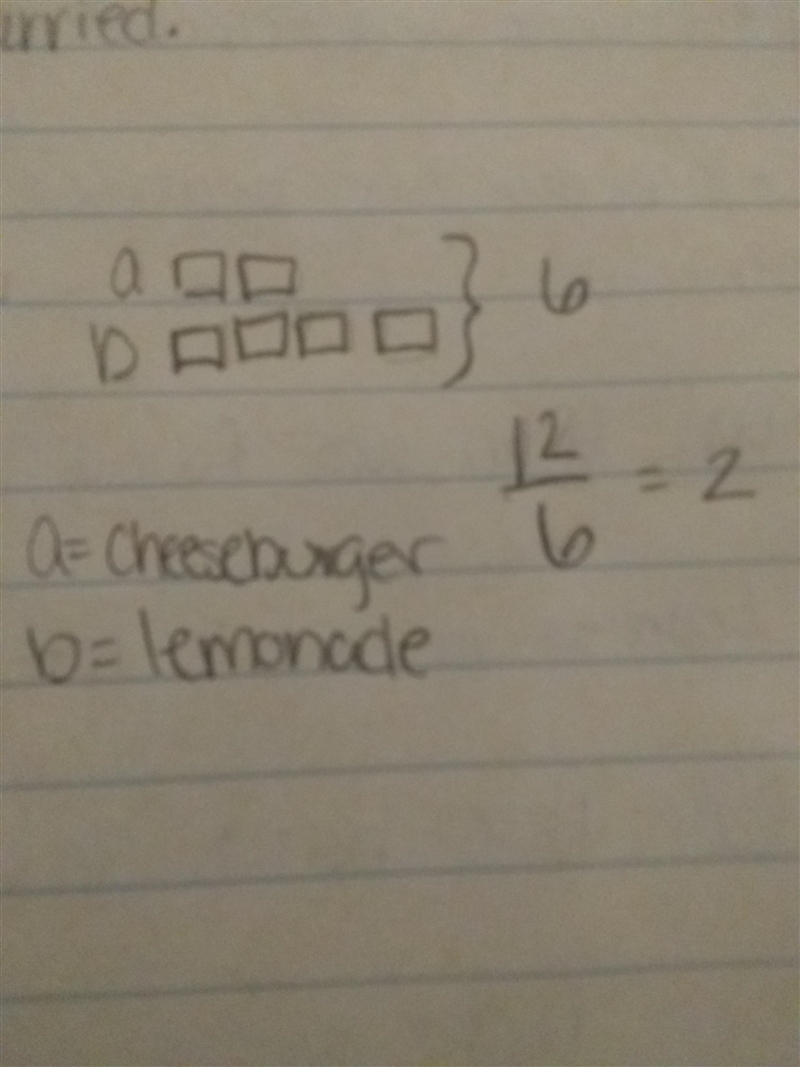 urried.
a } 6
b
12/6 = 2
a= cheeseburger
b= lemonade